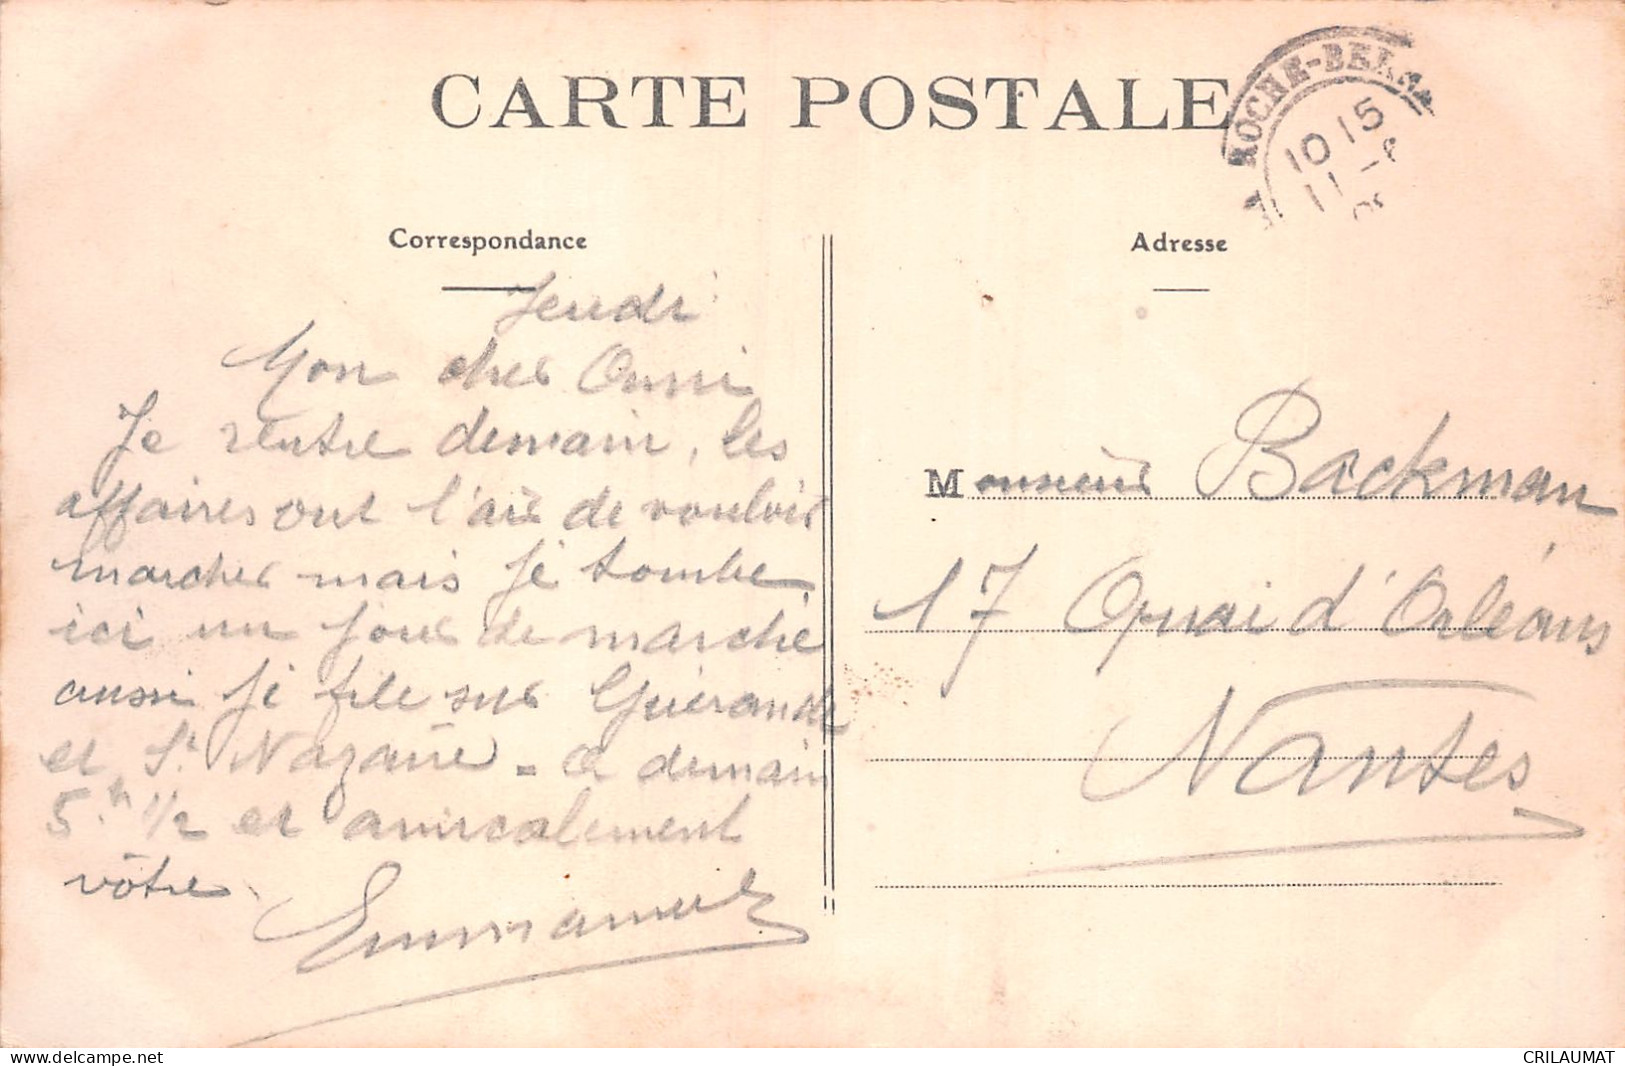 CARTE POSTALE
ROCHE-BERNA
10 15
11 -
Correspondance
Adresse
Jeudi
Mon cher
Je rentre demain, les
affaires ont l'air de vouloir
marcher mais je tombe
ici un jour de marché
aussi je file sur Guérande
et St Nazaire - à demain
5h 1/2 et amicalement
vôtre
Emmanuel
Monsieur Backman
17 Quai d'Orléans
Nantes
www.delcampe.net
CRILAUMAT